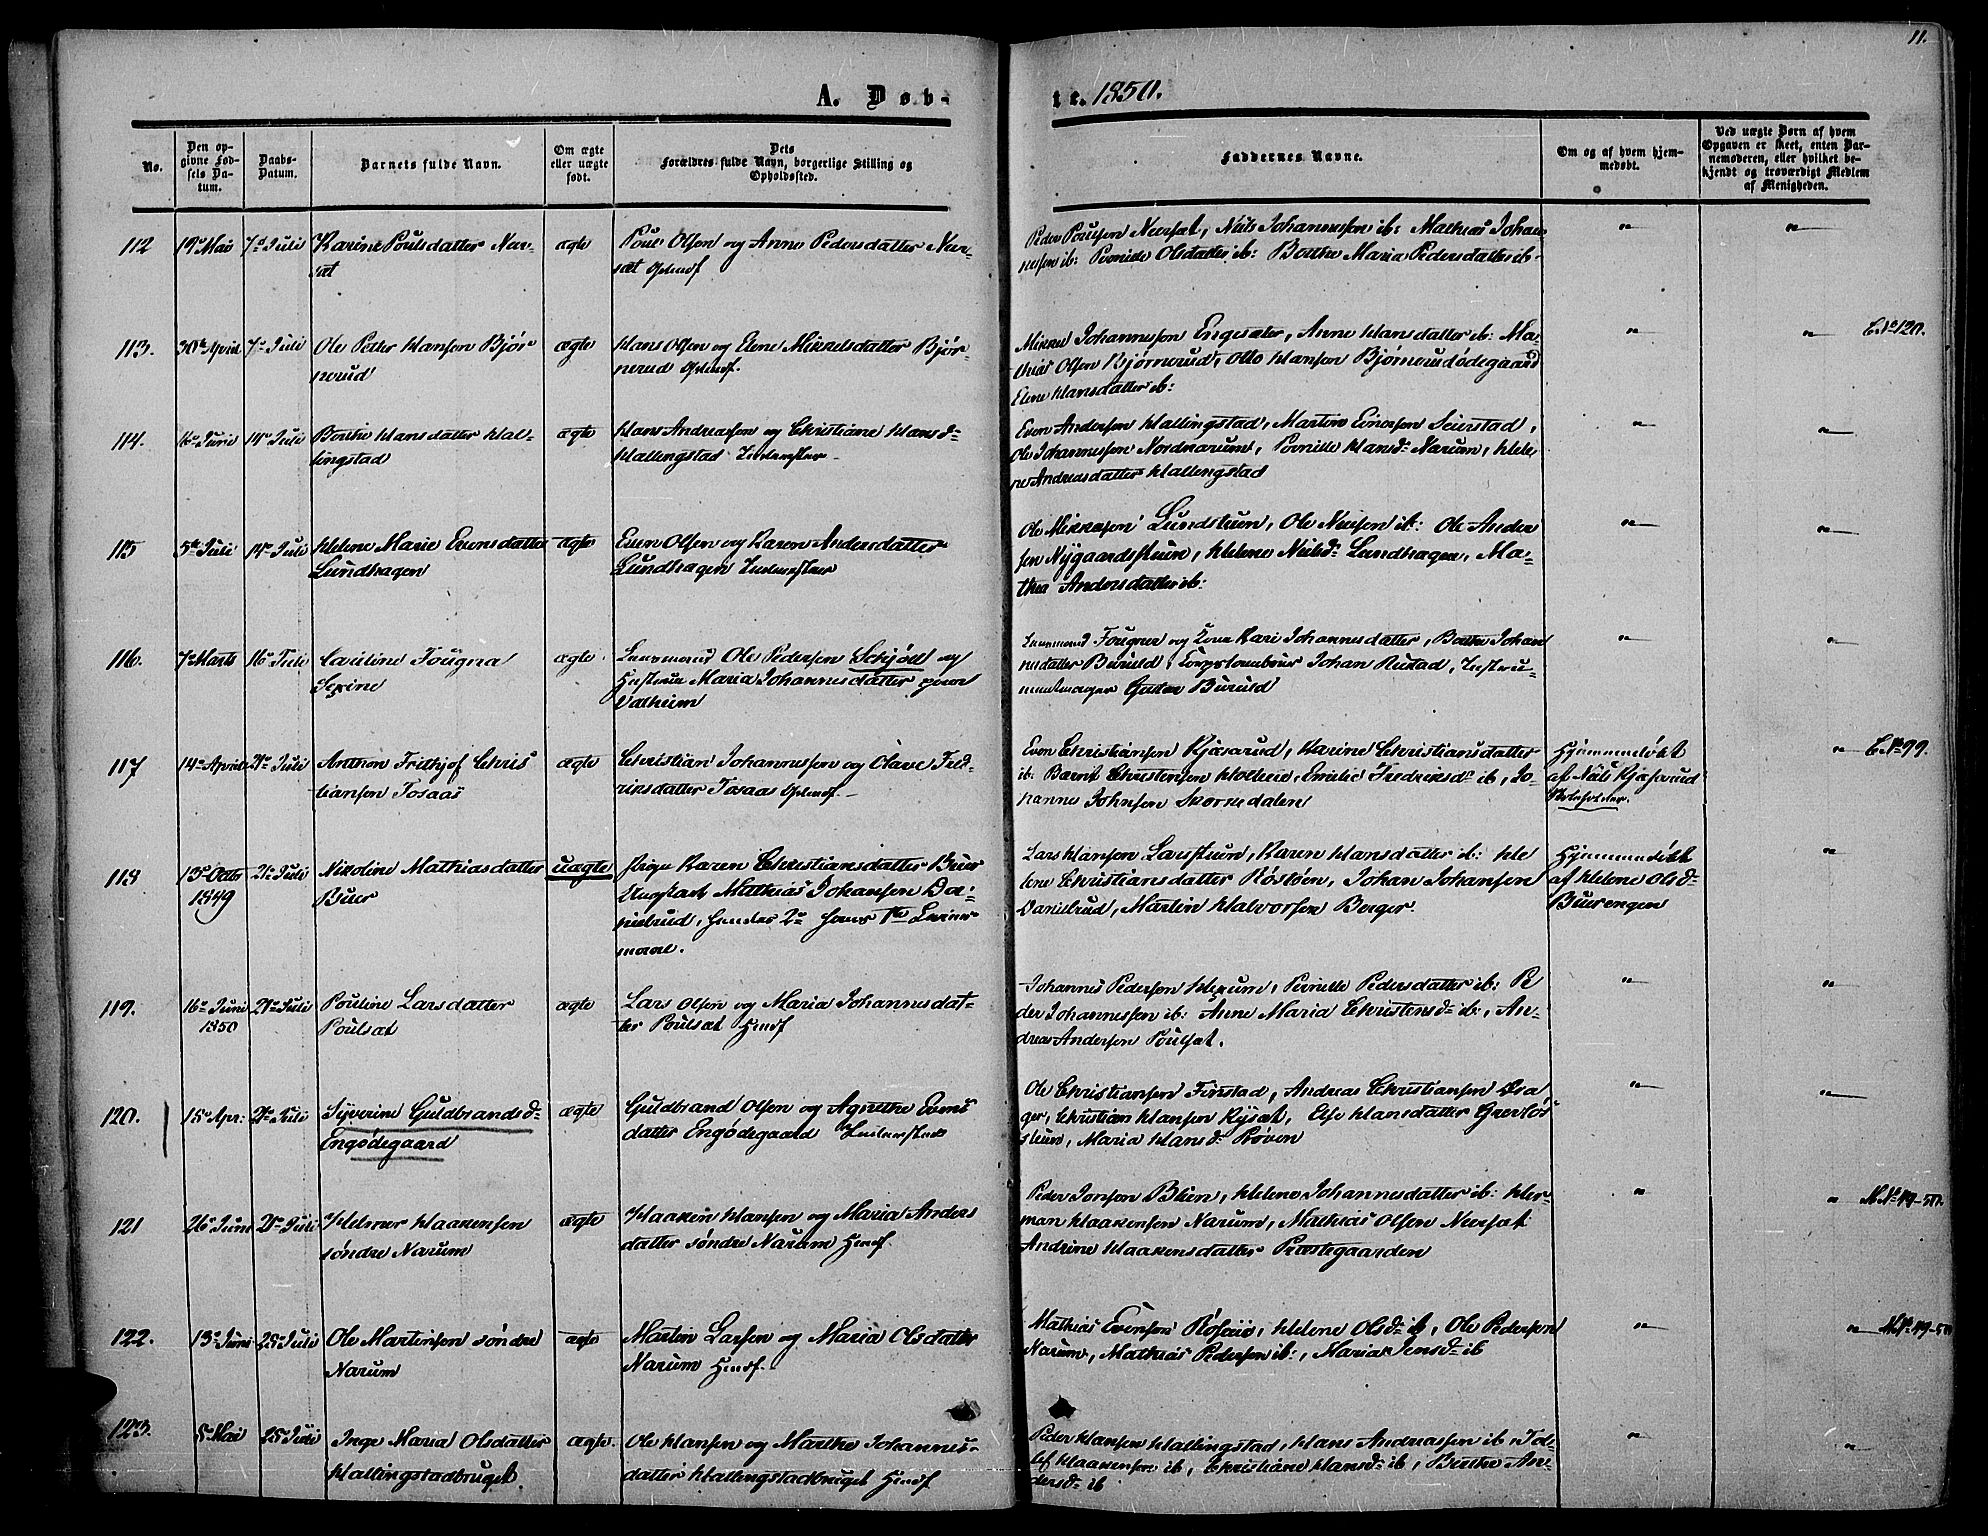 11.
A. Døb-
te. 1850.
No.
Den op-
givne Fød-
sels Da-
tum.
Daabs-
Datum.
Barnets fulde Navn.
Om ægte
eller uægte
født.
Dets
Forældres fulde Navn, borgerlige Stilling og
Opholdssted.
Faddernes Navne.
Om og af hvem hjem-
medøbt.
Ved uægte Børn af hvem
Opgaven er skeet, enten Bar-
nemoderen, eller hvilket be-
kjendt og troværdigt Medlem
af Menigheden.
112
19de Mai
7de Juli
Karine Poulsdatter Nær-
sæt
ægte
Poul Olsen og Anne Pedersdatter Nær-
sæt
Peder Poulsen Nærsæt, Niels Johannessen ib: Mathias Johan
nessen ib: Pernille Olsdatter ib: Berthe Maria Pedersdatter ib
113.
30te April
7de Juli
Ole Peter Hansen Bjør
nerud
ægte
Hans Olsen og Elene Mikkelsdatter Bjør-
nerud
Mikkel Johannessen Engesæter, Anne Hansdatter ib: Ma-
thias Olsen Bjørnerud, Otto Hansen Bjørnerudødegaard
Elene Hansdatter ib:
C.No 120.
114.
Juni
14de Juli
Berthe Hansdatter Hal-
lingstad
ægte
Hans Andreassen og Christiane Hansd-
Hallingstad Inderster
Even Andersen Hallingstad, Martin Einersen Seierstad,
Ole Johannessen Nordnarum, Pernille Hansd- Narum, Hele
ne Andreasdatter Hallingstad
115
5te Juli
14de Juli
Helene Marie Evensdatter
Lundhagen
ægte
Even Olsen og Karen Andersdatter
Lundhagen Inderster
Ole Mikkelsen Lundstuen, Ole Nielsen ib: Ole Ander
sen Nygaardstuen, Helene Nielsd- Lundhagen, Ma-
thea Andersdatter ib:
116.
7de Marts
16de Juli
Caroline Fougna
Sexine
ægte
Lensmand Ole Pedersen Schjøll og
Hustrue Maria Johannesdatter paa
Valheim
Lensmand Fougner og Kone Kari Johannesdatter, Berthe Johan
nesdatter Buruld, Corpstambour Johan Rustad, Instru-
mentmager Gustav Buruld
117
14de April
21de Juli
Anthon Frithjof Chris
tiansen Tosaas
ægte
Christian Johannessen og Olave Fred-
riksdatter Tosaas
Even Christiansen Kjæsarud, Karine Christiansdatter
ib: Bernt Christensen Kolheie, Emilie Fredriksd- ib, Jo-
hannes Johnsen Skorkedalen
Hjemmedøbt
af Niels Kjæsarud
Skoleholder.
C.No 99.
118
13de Octbr
1849
21de Juli
Nikoline Mathiasdatter
Buer
uægte
Pige Karen Christiansdatter Buer
Ungkarl Mathias Johansen Da-
nielrud, hendes 2de hans 1ste Leier
maal.
Lars Hansen Larsstuen, Karen Hansdatter ib: He
lene Christiansdatter Røstøen, Johan Johansen
Danielrud, Martin Halvorsen Berger.
Hjemmedøbt
af Helene Olsd-
Buerengen
119.
16de Juni
1850
21de Juli
Pouline Larsdatter
Poulsæt
ægte
Lars Olsen og Maria Johannesdat-
ter Poulsæt Hmdf
Johannes Pedersen Hexum, Pernille Pedersdatter ib: Pe
der Johannessen ib: Anne Maria Christensd- ib:, An-
dreas Andersen Poulsæt.
120.
15de Apr:
21de Juli
Syverine Guldbrandsd-
Engødegaard
ægte
Guldbrand Olsen og Agnethe Evens
datter Engødegaard Inderster
Ole Christiansen Finstad, Andreas Christiansen
ger, Christian Hansen Rysæt, Else Hansdatter
stuen, Maria Hansd- Prøven
121
26de Juni
21de Juli
Helmer Haakensen
søndre Narum
ægte
Haaken Hansen og Maria Anders
datter søndre Narum Hmdf.
Peder Jonsen Blien, Helene Johannesdatter ib: Her-
man Haakensen Narum, Mathias Olsen Nærsæt
Andrine Haakensdatter Præstegaarden
M.No 49-50.
122.
13de Juni
28de Juli
Ole Martinsen søndre
Narum
ægte
Martin Larsen og Maria Olsdatter
Narum Hmdf.
Mathias Evensen, Helene Olsd- ib, Ole Pedersen
Narum, Mathias Pedersen ib:, Maria Jensd- ib
M.No 49-50
123.
5te Mai
28de Juli
Inge Maria Olsdatter
Hallingstadbruget.
ægte
Ole Hansen og Marthe Johannes-
datter Hallingstadbruget Hmdf
Peder Hansen Hallingstad, Hans Andreassen ib, Tol-
lef Haakensen ib, Christiane Hansd- ib, Berthe An-
dersd- ib